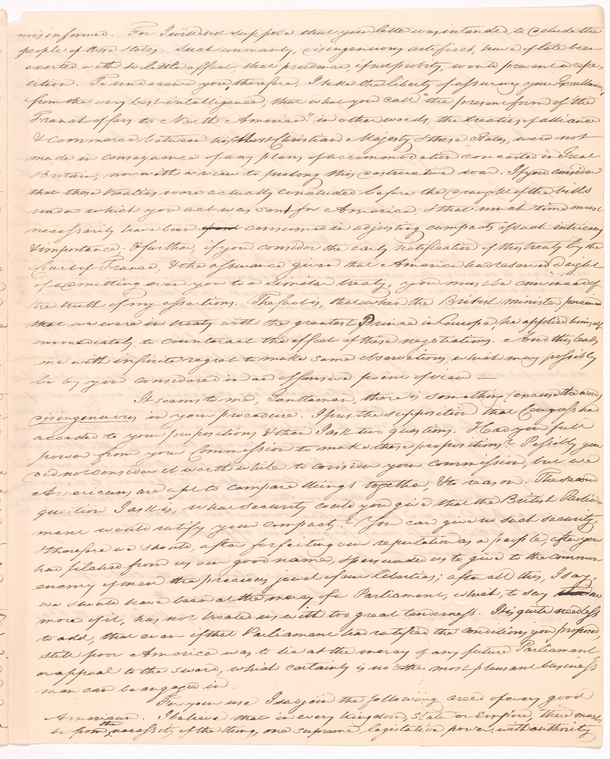 misinformed. For I will not suppose that your letter was intended to delude the
people of these States. Such unmanly, disingenuous artifices, have of late been
exerted with so little effect that prudence, if not probity, would prevent a repe-
tition. To undeceive you, therefore, I take the liberty of assuring your Excellencies
from the very best intelligence, that what you call "the present form of the
French offers to North America," in other words, the treaties of alliance
& Commerce between his Most Christian Majesty & these States, were not
made in consequence of any plans of accommodation concerted in Great
Britain, nor with a view to prolong this destructive war. If you consider
that these treaties were actually concluded before the draught of the bills
under which you act was sent for America & that much time must
necessarily have been consumed in adjusting compacts of such intricacy
& importance. & further, if you consider the early notification of this treaty by the
Court of France, & the assurance given that America had reserved a right
of admitting even you to a similar treaty, you must be convinced of
the truth of my assertions. The fact is, that when the British minister perceived
that we were in treaty with the greatest Prince in Europe, he applied himself
immediately to counteract the effect of these negotiations. And this leads
me with infinite regret to make some observations which may possibly
be by you considered in an offensive point of view —
It seems to me, Gentlemen, there is something (excuse the word)
disingenuous in your procedure. I put the supposition that Congress had
acceded to your propositions & then I ask two questions. Had you full
power from your Commission to make these propositions? Possibly you
did not consider it worth while to consider your commission, but we
Americans are apt to compare things together, & to reason. The second
question I ask is, what security could you give that the British Parlia-
ment would ratify your compacts? You can give no such security,
& therefore we should, after forfeiting our reputation as a people, after you
had filched from us our good name, & persuaded us to give to the common
enemy of man the precious jewel of our liberties; after all this, I say,
we should have been at the mercy of a Parliament, which, to say no
more of it, has not treated us with too great tenderness. It is quite needless
to add, that even if that Parliament had ratified the conditions you proposed
still poor America was to lie at the mercy of any future Parliament
or appeal to the sword, which certainly is not the most pleasant business
man can be engaged in.
For your use I subjoin the following creed of every good
American. I believe that in every kingdom, State or Empire, there must
be from the necessity of the thing, one supreme legislative power, with authority